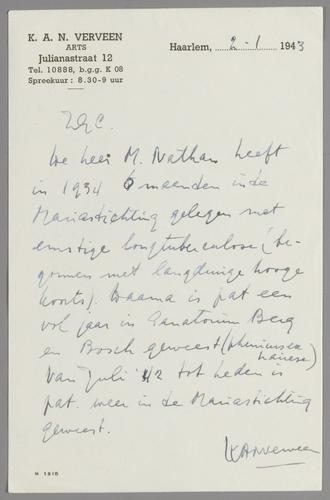 K. A. N. VERVEEN
ARTS
Julianastraat 12
Tel. 10888, b.g.g. K 08
Spreekuur : 8.30-9 uur
Haarlem, 2-1 1943
ZGC.
De heer M. Nathan heeft
in 1934 6 maanden in de
Mariastichting gelegen met
ernstige longtuberculose (be-
gonnen met langdurige hooge
koorts). Daarna is pat een
vol jaar in Sanatorium Berg
en Bosch geweest (phrenicusex
hairese)
Van Juli 42 tot heden is
pat. weer in de Mariastichting
geweest.
KANVerveen
M 1815